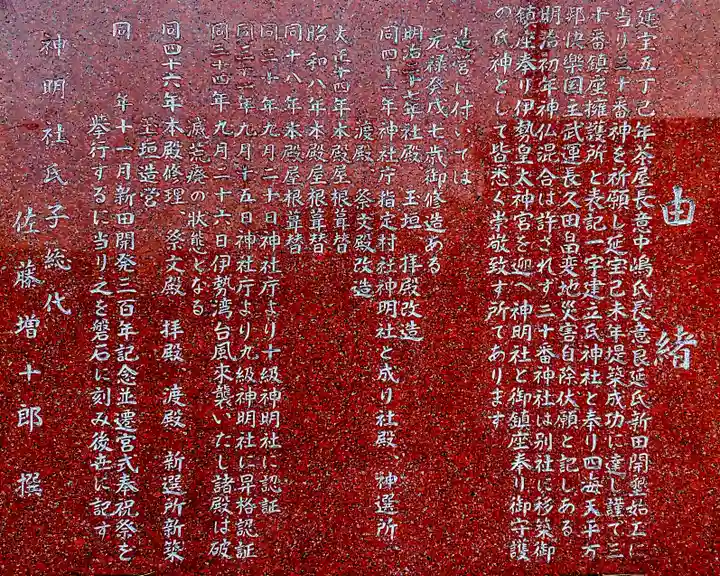 由緒
延宝五丁己年茶屋長意中嶋氏長意良延氏新田開墾始工に
当り三十番神を祈願し延宝己未年堤築成功に達し謹で三
十番鎮座擁護所と表記一宇建立氏神社と奉り四海天平万
邦快楽国王武運長久田畠変地災害自除伏願と記しある
明治初年神仏混合は許されず三十番神社は別社に移築御
鎮座奉り伊勢皇大神宮を迎へ神明社と御鎮座奉り御守護
の氏神として皆悉く崇敬致す所であります
造営に付いては
元禄癸戌七歳御修造ある
明治三十七年社殿 玉垣 拝殿改造
同四十一年神社庁指定村社神明社と成り社殿、神選所
渡殿、祭文殿改造
大正十四年本殿屋根葺替
昭和八年本殿屋根葺替
同十八年本殿屋根葺替
同三十年九月二十日神社庁より十級神明社に認証
同三十一年九月十五日神社庁より九級神明社に昇格認証
同三十四年九月二十六日伊勢湾台風来襲いたし諸殿は破
滅荒廃の状態となる
同四十六年本殿修理、祭文殿 拝殿、渡殿 新選所新築
玉垣造営
同 年十一月新田開発三百年記念並遷宮式奉祝祭を
挙行するに当り之を磐石に刻み後世に記す
神明社氏子総代
佐藤増十郎 撰